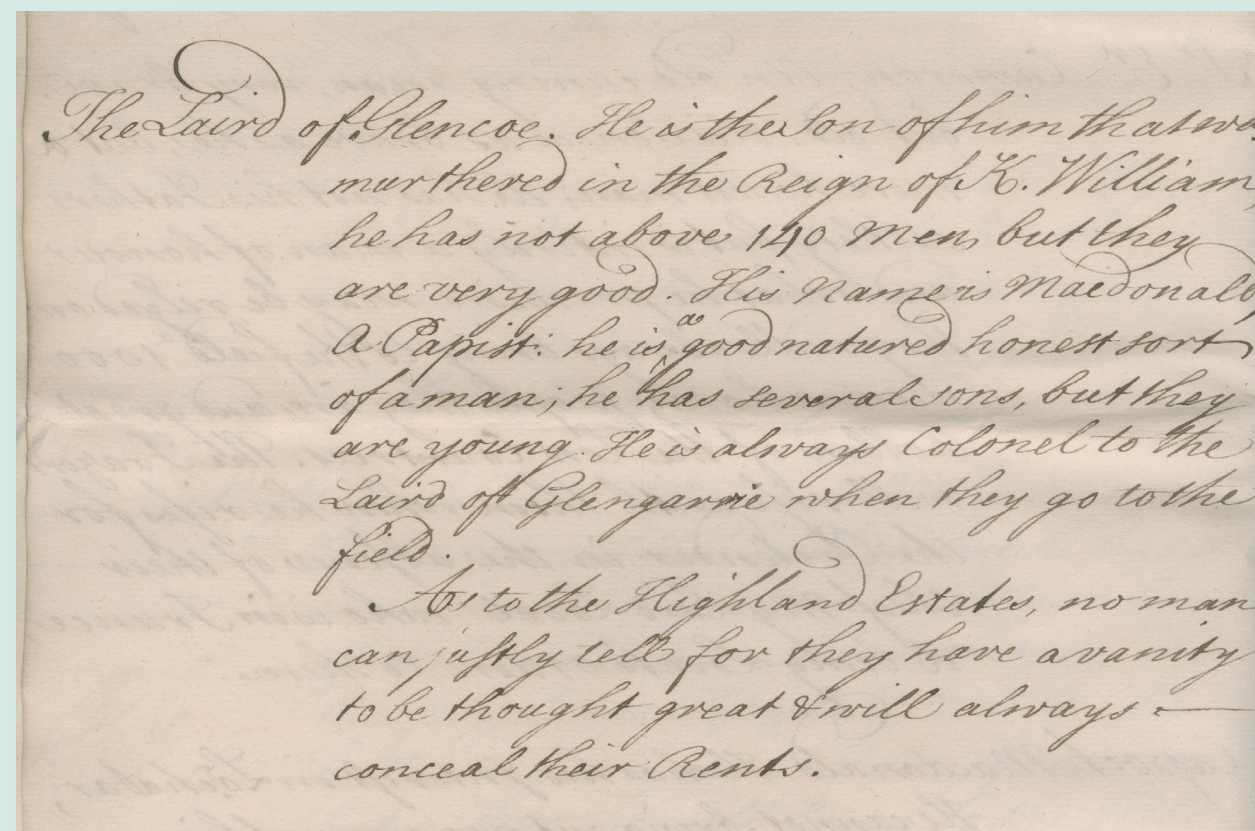 The Laird of Glencoe. He is the Son of him that was
murthered in the Reign of K. William,
he has not above 140 Men, but they
are very good. His Name is Macdonald,
A Papist: he is a good natured honest sort
of a man; he has several sons, but they
are young. He is always Colonel to the
Laird of Glengarrie when they go to the
field.
As to the Highland Estates, no man
can justly tell for they have a vanity
to be thought great & will always —
conceal their Rents.